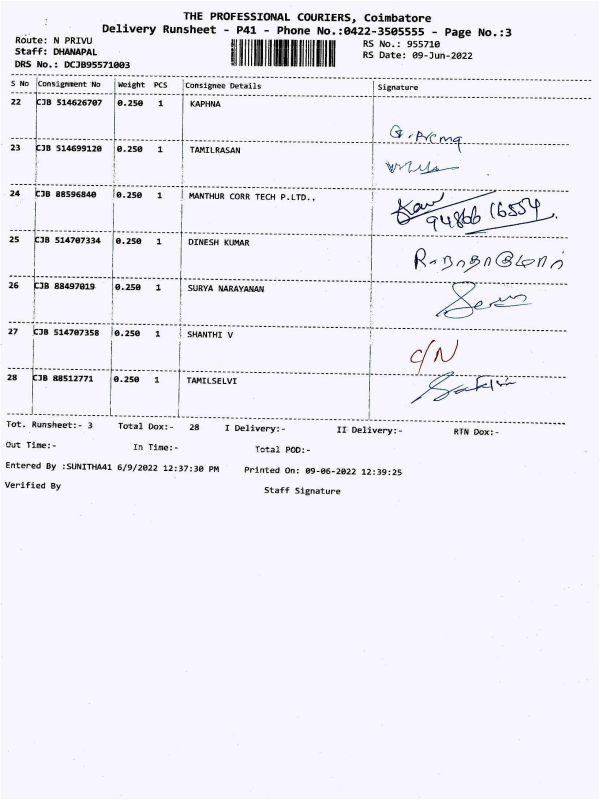 THE PROFESSIONAL COURIERS, Coimbatore
Delivery Runsheet - P41 - Phone No.:0422-3505555 - Page No.:3
Route: N PRIVU
RS No.: 955710
Staff: DHANAPAL
RS Date: 09-Jun-2022
DRS No.: DCJB95571003
S No Consignment No Weight PCS Consignee Details Signature
22 CJB 514626707 0.250 1 KAPHNA
G. Prema
23 CJB 514699120 0.250 1 TAMILRASAN
24 CJB 88596840 0.250 1 MANTHUR CORR TECH P.LTD.,
94866 16554
25 CJB 514707334 0.250 1 DINESH KUMAR
26 CJB 88497019 0.250 1 SURYA NARAYANAN
27 CJB 514707358 0.250 1 SHANTHI V
C/N
28 CJB 88512771 0.250 1 TAMILSELVI
Tot. Runsheet:- 3 Total Dox:- 28 I Delivery:- II Delivery:- RTN Dox:-
Out Time:- In Time:- Total POD:-
Entered By :SUNITHA41 6/9/2022 12:37:30 PM Printed On: 09-06-2022 12:39:25
Verified By Staff Signature